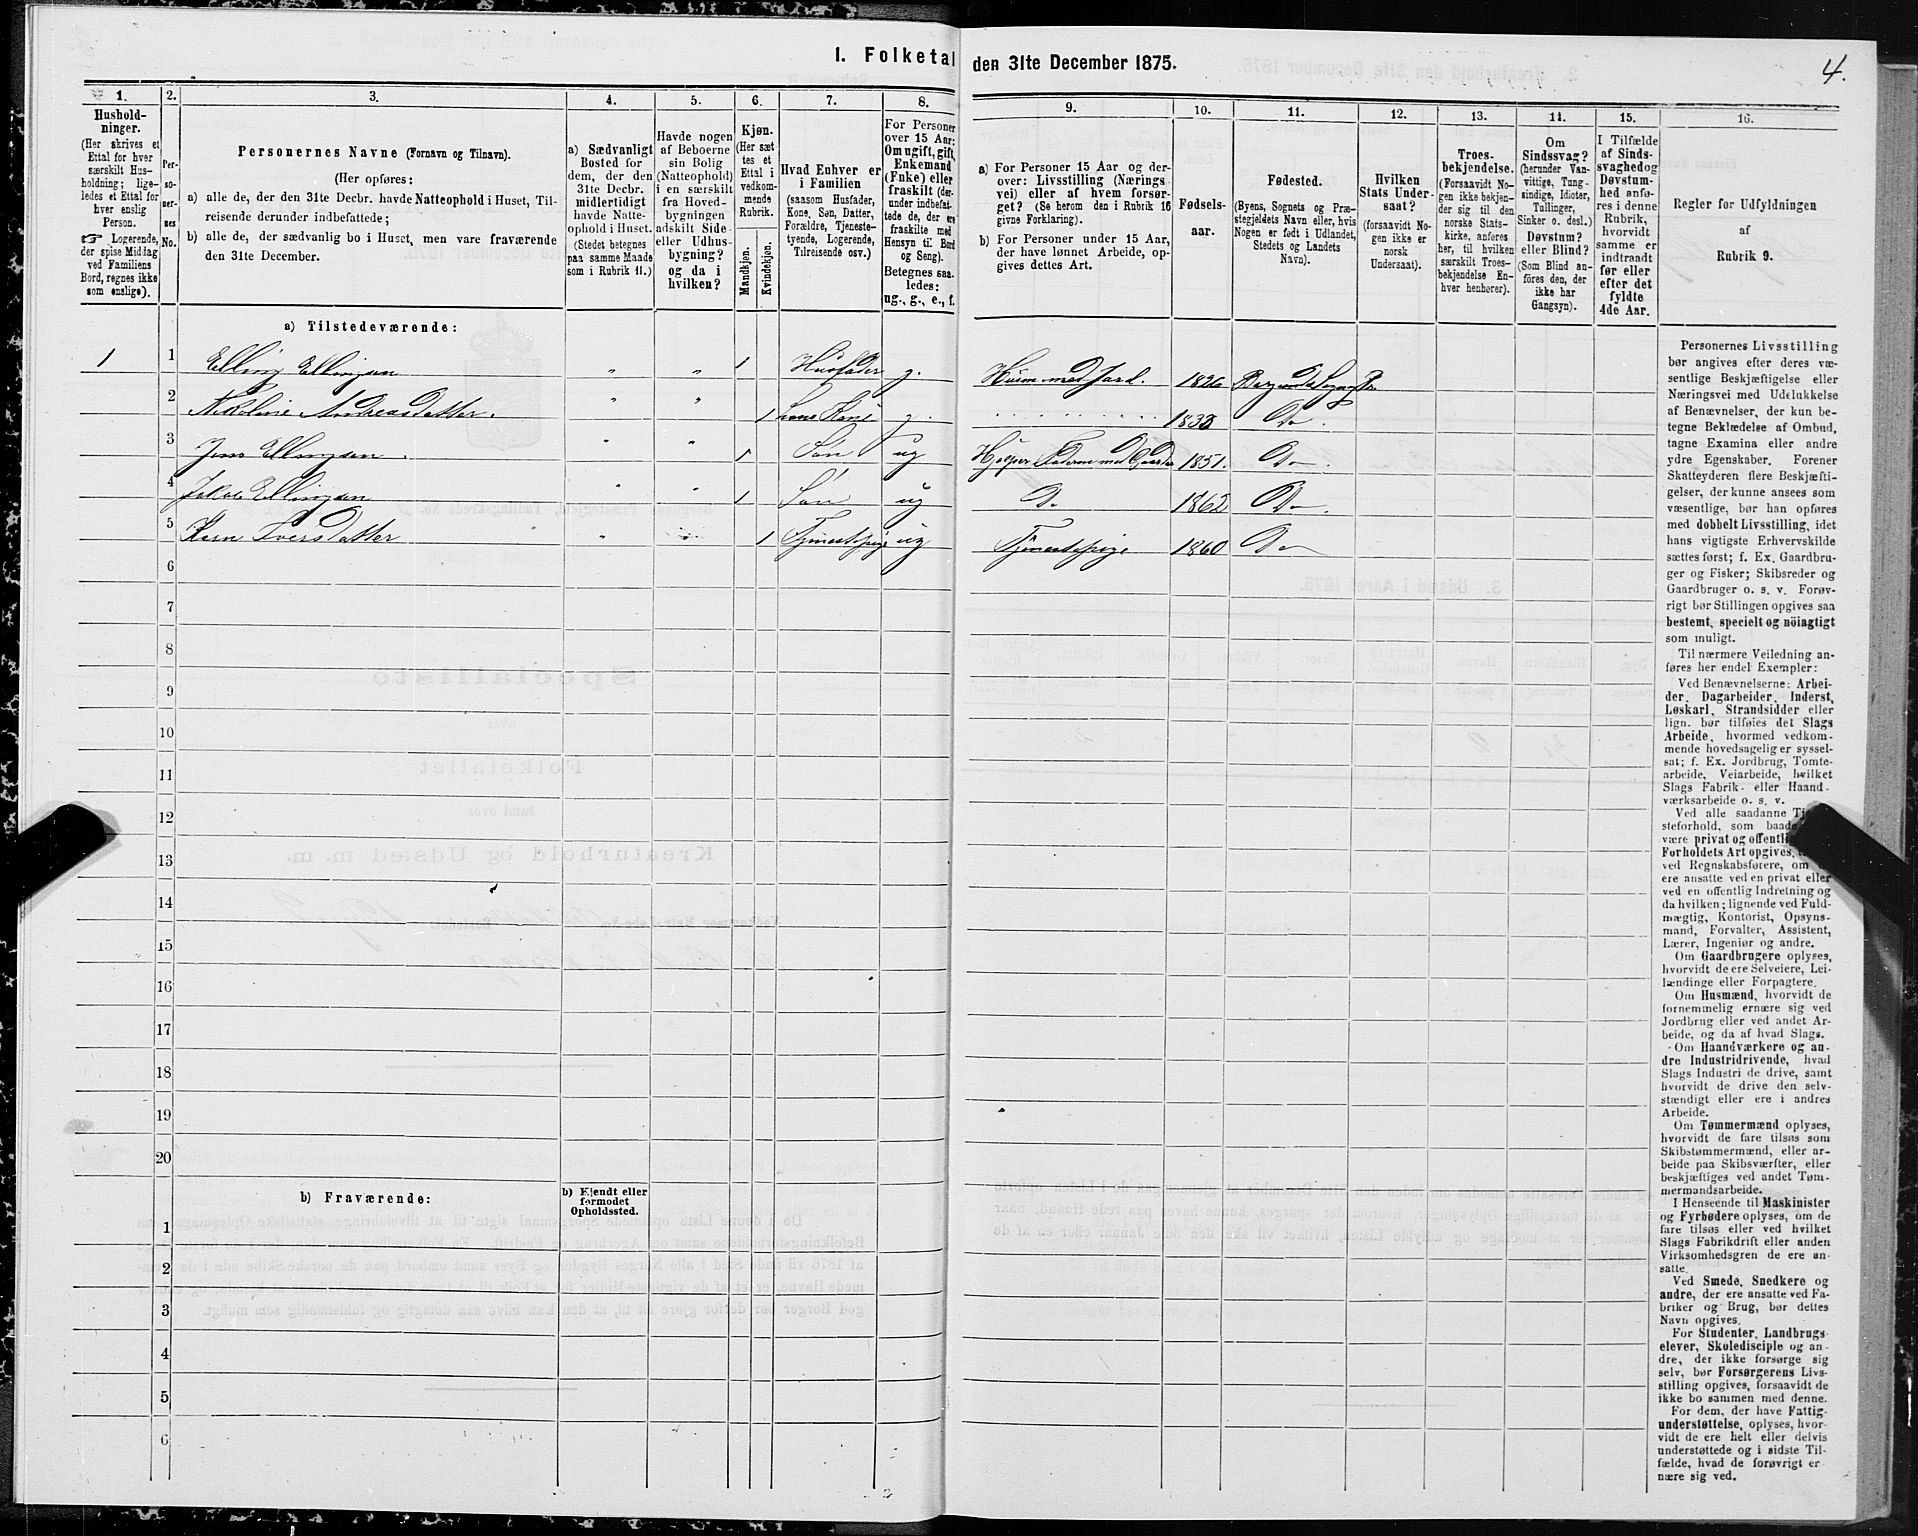 I. Folketal den 31te December 1875.
4.
1.
Hushold-
ninger.
(Her skrives et
Ettal for hver
særskilt Hus-
holdning; lige-
ledes et Ettal for
hver enslig
Person.
Logerende,
der spise Middag
ved Familiens
Bord, regnes ikke
som enslige).
2.
Per-
so-
ner-
nes
No.
3.
Personernes Navne (Fornavn og Tilnavn).
(Her opføres:
a) alle de, der den 31te Decbr. havde Natteophold i Huset, Til-
reisende derunder indbefattede;
b) alle de, der sædvanlig bo i Huset, men vare fraværende
den 31te December.
4.
a) Sædvanligt
Bosted for
dem, der den
31te Decbr.
midlertidigt
havde Natte-
ophold i Huset.
(Stedet betegnes
paa samme Maade
som i Rubrik 11.)
5.
Havde nogen
af Beboerne
sin Bolig
(Natteophold)
i en særskilt
fra Hoved-
bygningen
adskilt Side-
eller Udhus-
bygning?
og da i
hvilken?
6.
Kjøn.
(Her sæt
tes et
Ettal i
vedkom-
mende
Rubrik.
Mandkjøn.
Kvindekjøn.
7.
Hvad Enhver er
i Familien
(saasom Husfader,
Kone, Søn, Datter,
Forældre, Tjeneste-
tyende, Logerende,
Tilreisende osv.)
8.
For Personer
over 15 Aar:
Om ugift, gift,
Enkemand
(Enke) eller
fraskilt (der-
under indbefat-
tede de, der ere
fraskilte med
Hensyn til Bord
og Seng).
Betegnes saa-
ledes:
ug., g., e., f.
9.
a) For Personer 15 Aar og der-
over: Livsstilling (Nærings-
vei) eller af hvem forsør-
get? (Se herom den i Rubrik 16
givne Forklaring).
b) For Personer under 15 Aar,
der have lønnet Arbeide, op-
gives dettes Art.
10.
Fødsels-
aar.
11.
Fødested.
(Byens, Sognets og Præ-
stegjeldets Navn eller, hvis
Nogen er født i Udlandet,
Stedets og Landets
Navn).
12.
Hvilken
Stats Under-
saat?
(forsaavidt No-
gen ikke er
norsk
Undersaat).
13.
Troes-
bekjendelse.
(Forsaavidt No-
gen ikke bekjen-
der sig til den
norske Stats-
kirke, anføres
her, til hvilken
særskilt Troes-
bekjendelse En-
hver henhører).
14.
Om
Sindssvag?
(herunder Van-
vittige, Tung-
sindige, Idioter,
Tullinger,
Sinker o. desl.)
Døvstum?
eller Blind?
(Som Blind an-
føres den, der
ikke har
Gangsyn).
15.
I Tilfælde
af Sinds-
svaghed og
Døvstum-
hed anfø-
res i denne
Rubrik,
hvorvidt
samme er
indtraadt
før eller
efter det
fyldte
4de Aar.
16.
Regler for Udfyldningen
af
Rubrik 9.
a) Tilstedeværende:
1 1 Elling Ellingsen " " 1 Husfader g. Husm med Jord. 1826
2 Nikoline Andreasdatter. " " 1 hans Kone g. Do.
3 Jens Ellingsen. " " 1 Søn ug Hjelper Faderen med 1851. Do.
4 Jakob Ellingsen " " 1 Søn ug Do 1862 Do.
5 Karn Iversdatter " " 1 Tjenestepige ug Tjenestepige 1860 Do
6
7
8
9
10
11
12
13
14
15
16
17
18
19
20
b) Fraværende:
b) Kjendt eller
formodet
Opholdssted.
1
2
3
4
5
6
Personernes Livsstilling
bør angives efter deres væ-
sentlige Beskjæftigelse eller
Næringsvei med Udelukkelse
af Benævnelser, der kun be-
tegne Beklædelse af Ombud,
tagne Examina eller andre
ydre Egenskaber. Forener
Skatteyderen flere Beskjæfti-
gelser, der kunne ansees som
væsentlige, bør han opføres
med dobbelt Livsstilling, idet
hans vigtigste Erhvervskilde
sættes først; f. Ex. Gaardbru-
ger og Fisker; Skibsreder og
Gaardbruger o. s. v. Forøv-
rigt bør Stillingen opgives saa
bestemt, specielt og nöiagtigt
som muligt.
Til nærmere Veiledning an-
føres her endel Exempler:
Ved Benævnelserne: Arbei-
der, Dagarbeider, Inderst,
Løskarl, Strandsidder eller
lign. bør tilføies det Slags
Arbeide, hvormed vedkom-
mende hovedsagelig er syssel-
sat; f. Ex. Jordbrug, Tomte-
arbeide, Veiarbeide, hvilket
Slags Fabrik- eller Haand-
værksarbeide o. s. v.
Ved alle saadanne
steforhold, som
være privat og
Forholdets Art opgives,
ved Regnskabsførere, om
ere ansatte ved en privat eller
ved en offentlig Indretning og
da hvilken; lignende ved Fuld-
mægtig, Kontorist, Opsyns-
mand, Forvalter, Assistent,
Lærer, Ingeniør og andre.
Om Gaardbrugere oplyses,
hvorvidt de ere Selveiere, Lei-
lændinge eller Forpagtere.
Om Husmænd, hvorvidt de
fornemmelig ernære sig ved
Jordbrug eller ved andet Ar-
beide, og da af hvad Slags.
Om Haandværkere og an-
dre Industridrivende, hvad
Slags Industri de drive, samt
hvorvidt de drive den selv-
stændigt eller ere i andres
Arbeide.
Om Tømmermænd oplyses,
hvorvidt de fare tilsøs som
Skibstømmermænd, eller ar-
beide paa Skibsværfter, eller
beskjæftiges ved andet Tøm-
mermandsarbeide.
I Henseende til Maskinister
og Fyrbødere oplyses, om de
fare tilsøs eller ved hvilket
Slags Fabrikdrift eller anden
Virksomhedsgren de ere an-
satte.
Ved Smede, Snedkere og
andre, der ere ansatte ved Fa-
briker og Brug, bør dettes
Navn opgives.
For Studenter, Landbrugs-
elever, Skoledisciple og an-
dre, der ikke forsørge sig
selv, bør Forsørgerens Livs-
stilling opgives, forsaavidt de
ikke bo sammen med denne.
For dem, der have Fattig-
understøttelse, oplyses, hvor-
vidt de ere helt eller delvis
understøttede og i sidste Til-
fælde, hvad de forøvrigt er-
nære sig ved.